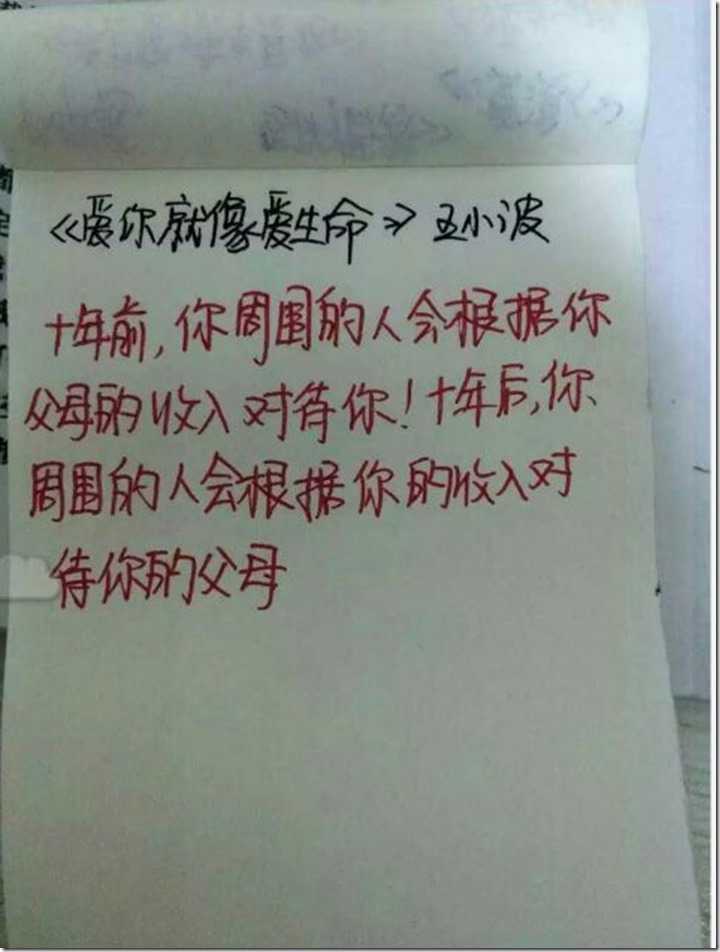 《爱你就像爱生命》王小波
十年前,你周围的人会根据你
父母的收入对待你!十年后,你
周围的人会根据你的收入对
待你的父母